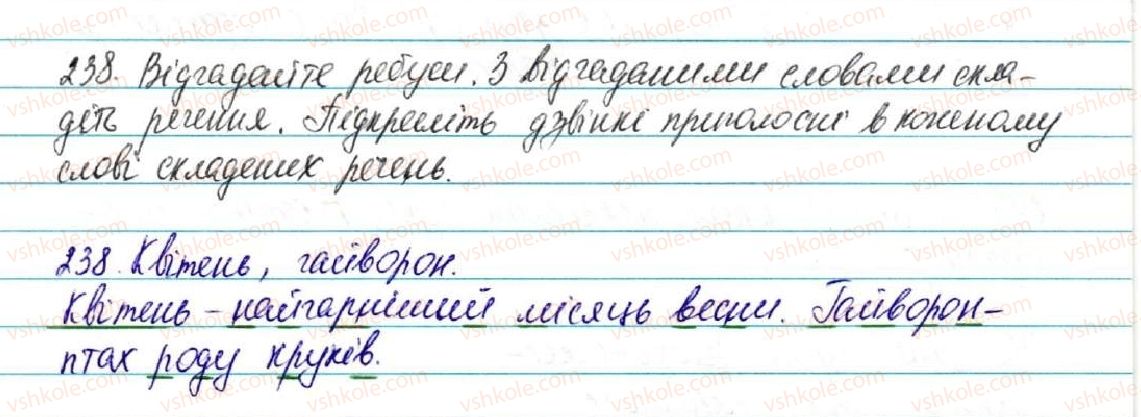 238. Відгадайте ребуси. З відгаданими словами скла-
діть речення. Підкресліть дзвінкі приголосні в кожному
слові складених речень.
238. Квітень, гайворон.
Квітень – найгарніший місяць весни. Гайворон –
птах роду круків.